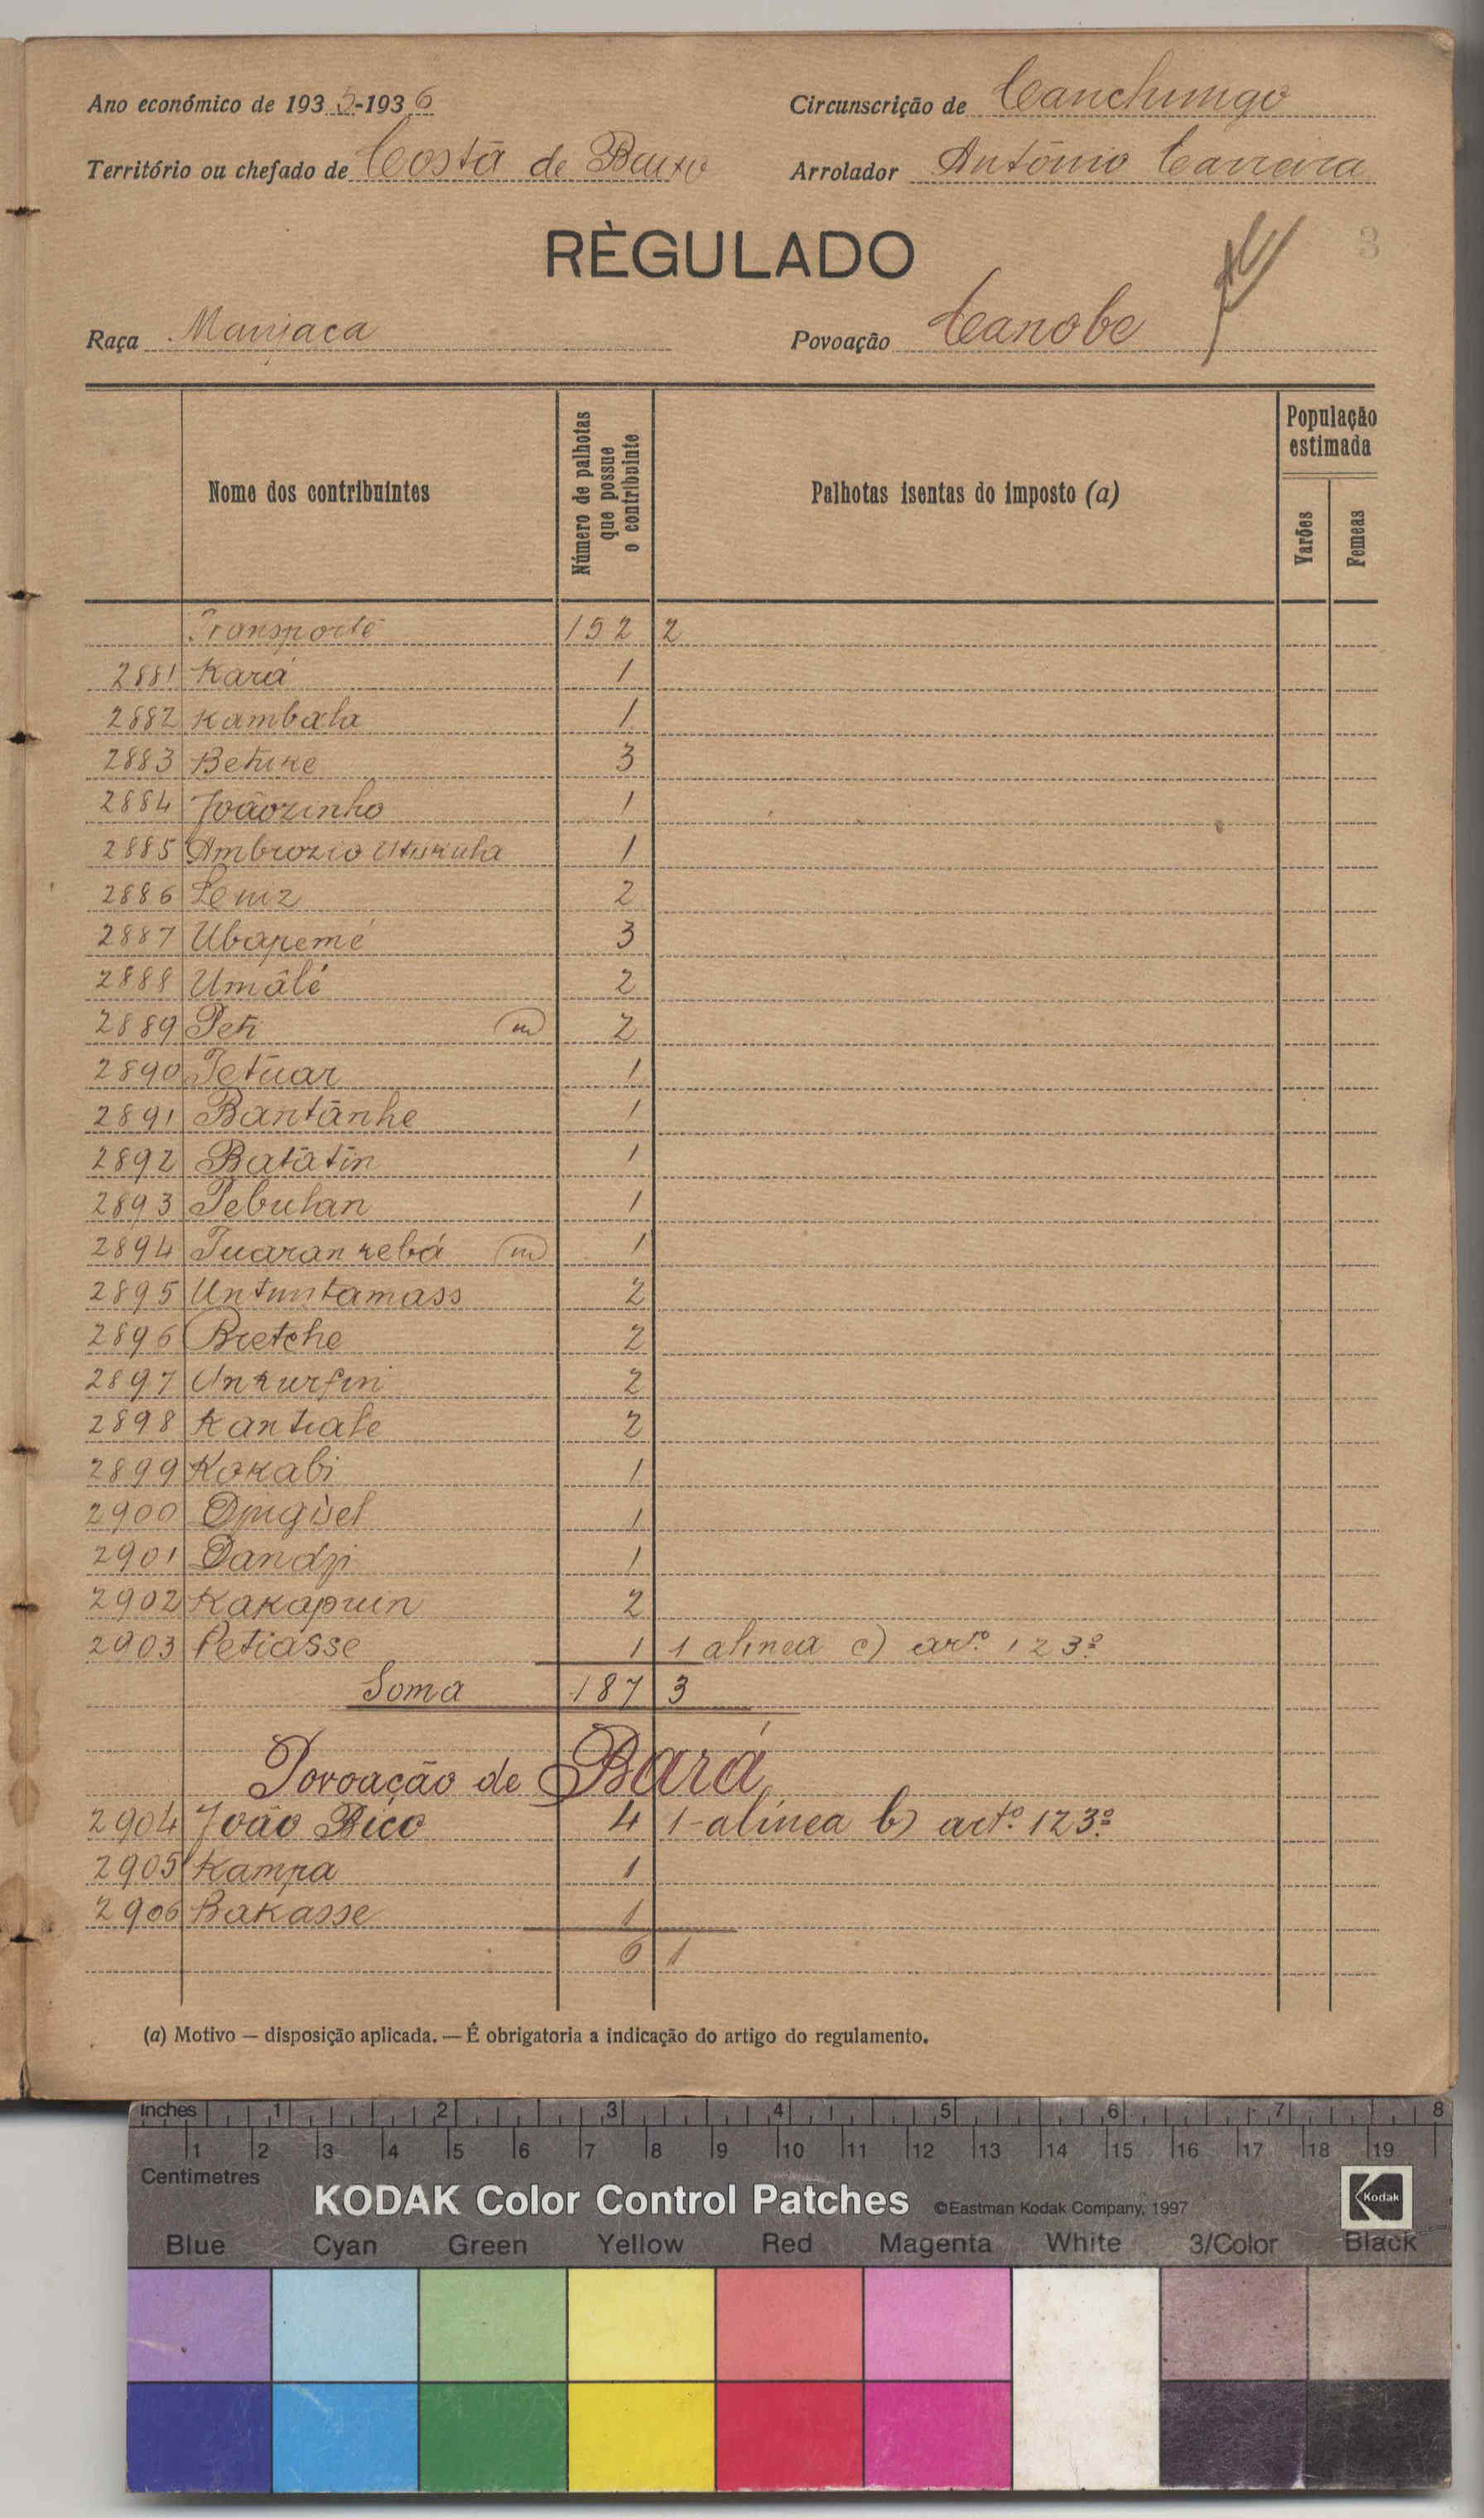 Ano económico de 1935-1936
Circunscrição de Canchungo
Território ou chefado de Costa de Baixo
Arrolador António Carreira
RÈGULADO
3
Raça Manjaca
Povoação Canobe
Nome dos contribuintes
Número de palhotas que possue o contribuinte
Palhotas isentas do imposto (a)
População estimada
Varões
Femeas
Transporte 152 2
2881 Kará 1
2882 Kambala 1
2883 Betuke 3
2884 Joãozinho 1
2885 Ambrozio Utukula 1
2886 Leniz 2
2887 Ubapemé 3
2888 Umâlé 2
2889 Peti m 2
2890 Tetuar 1
2891 Bantânhe 1
2892 Batatin 1
2893 Pebulan 1
2894 Tuarankebá m 1
2895 Untuntamass 2
2896 Bretche 2
2897 Unkurfin 2
2898 Kantiale 2
2899 Kokabi 1
2900 1
2901 Dandji 1
2902 Kakapuin 2
2903 Petiasse 1 1 alinea c) artº 123º
Soma 187 3
Povoação de Bará
2904 João Bico 4 1-alínea b) artº 123º
2905 Kampa 1
2906 Bakasse 1
6 1
(a) Motivo — disposição aplicada. — É obrigatoria a indicação do artigo do regulamento.
Inches 1 2 3 4 5 6 7 8
1 2 3 4 5 6 7 8 9 10 11 12 13 14 15 16 17 18 19
Centimetres
KODAK Color Control Patches ©Eastman Kodak Company, 1997 Kodak
Blue Cyan Green Yellow Red Magenta White 3/Color Black